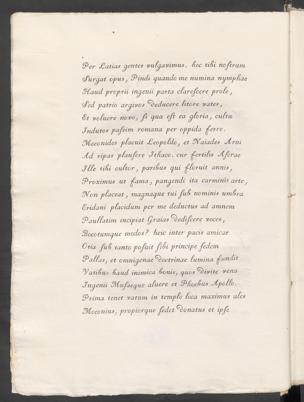 Per Latias gentes vulgavimus. hec tibi nostrum
Surgat opus, Pindi quando me numina nymphae
Haud proprii ingenii parta clarescere prole,
Sed patrio argivos deducere litore vates,
Et voluere novo, si qua est ea gloria, cultu
Indutos passim romana per oppida ferre.
Maeonides placuit Leopoldo, et Naiades Arni
Ad ripas plausere Ithaco. cur fertilis Asrae
Ille tibi cultor, paribus qui floruit annis,
Proximus ut fama, pangendi ita carminis arte,
Non placeat, magnaque tui sub nominis umbra
Eridani placidum per me deductus ad amnem
Paullatim incipiat Graias dediscere voces,
Boeotumque modos? heic inter pacis amicae
Otia sub tanto posuit sibi principe sedem
Pallas, et omnigenae doctrinae lumina fundit
Vatibus haud inimica bonis, quos divite vena
Ingenii Musaeque aluere et Phoebus Apollo.
Prima tenet vatum in templo loca maximus ales
Maeonius, propiorque sedet donatus et ipse